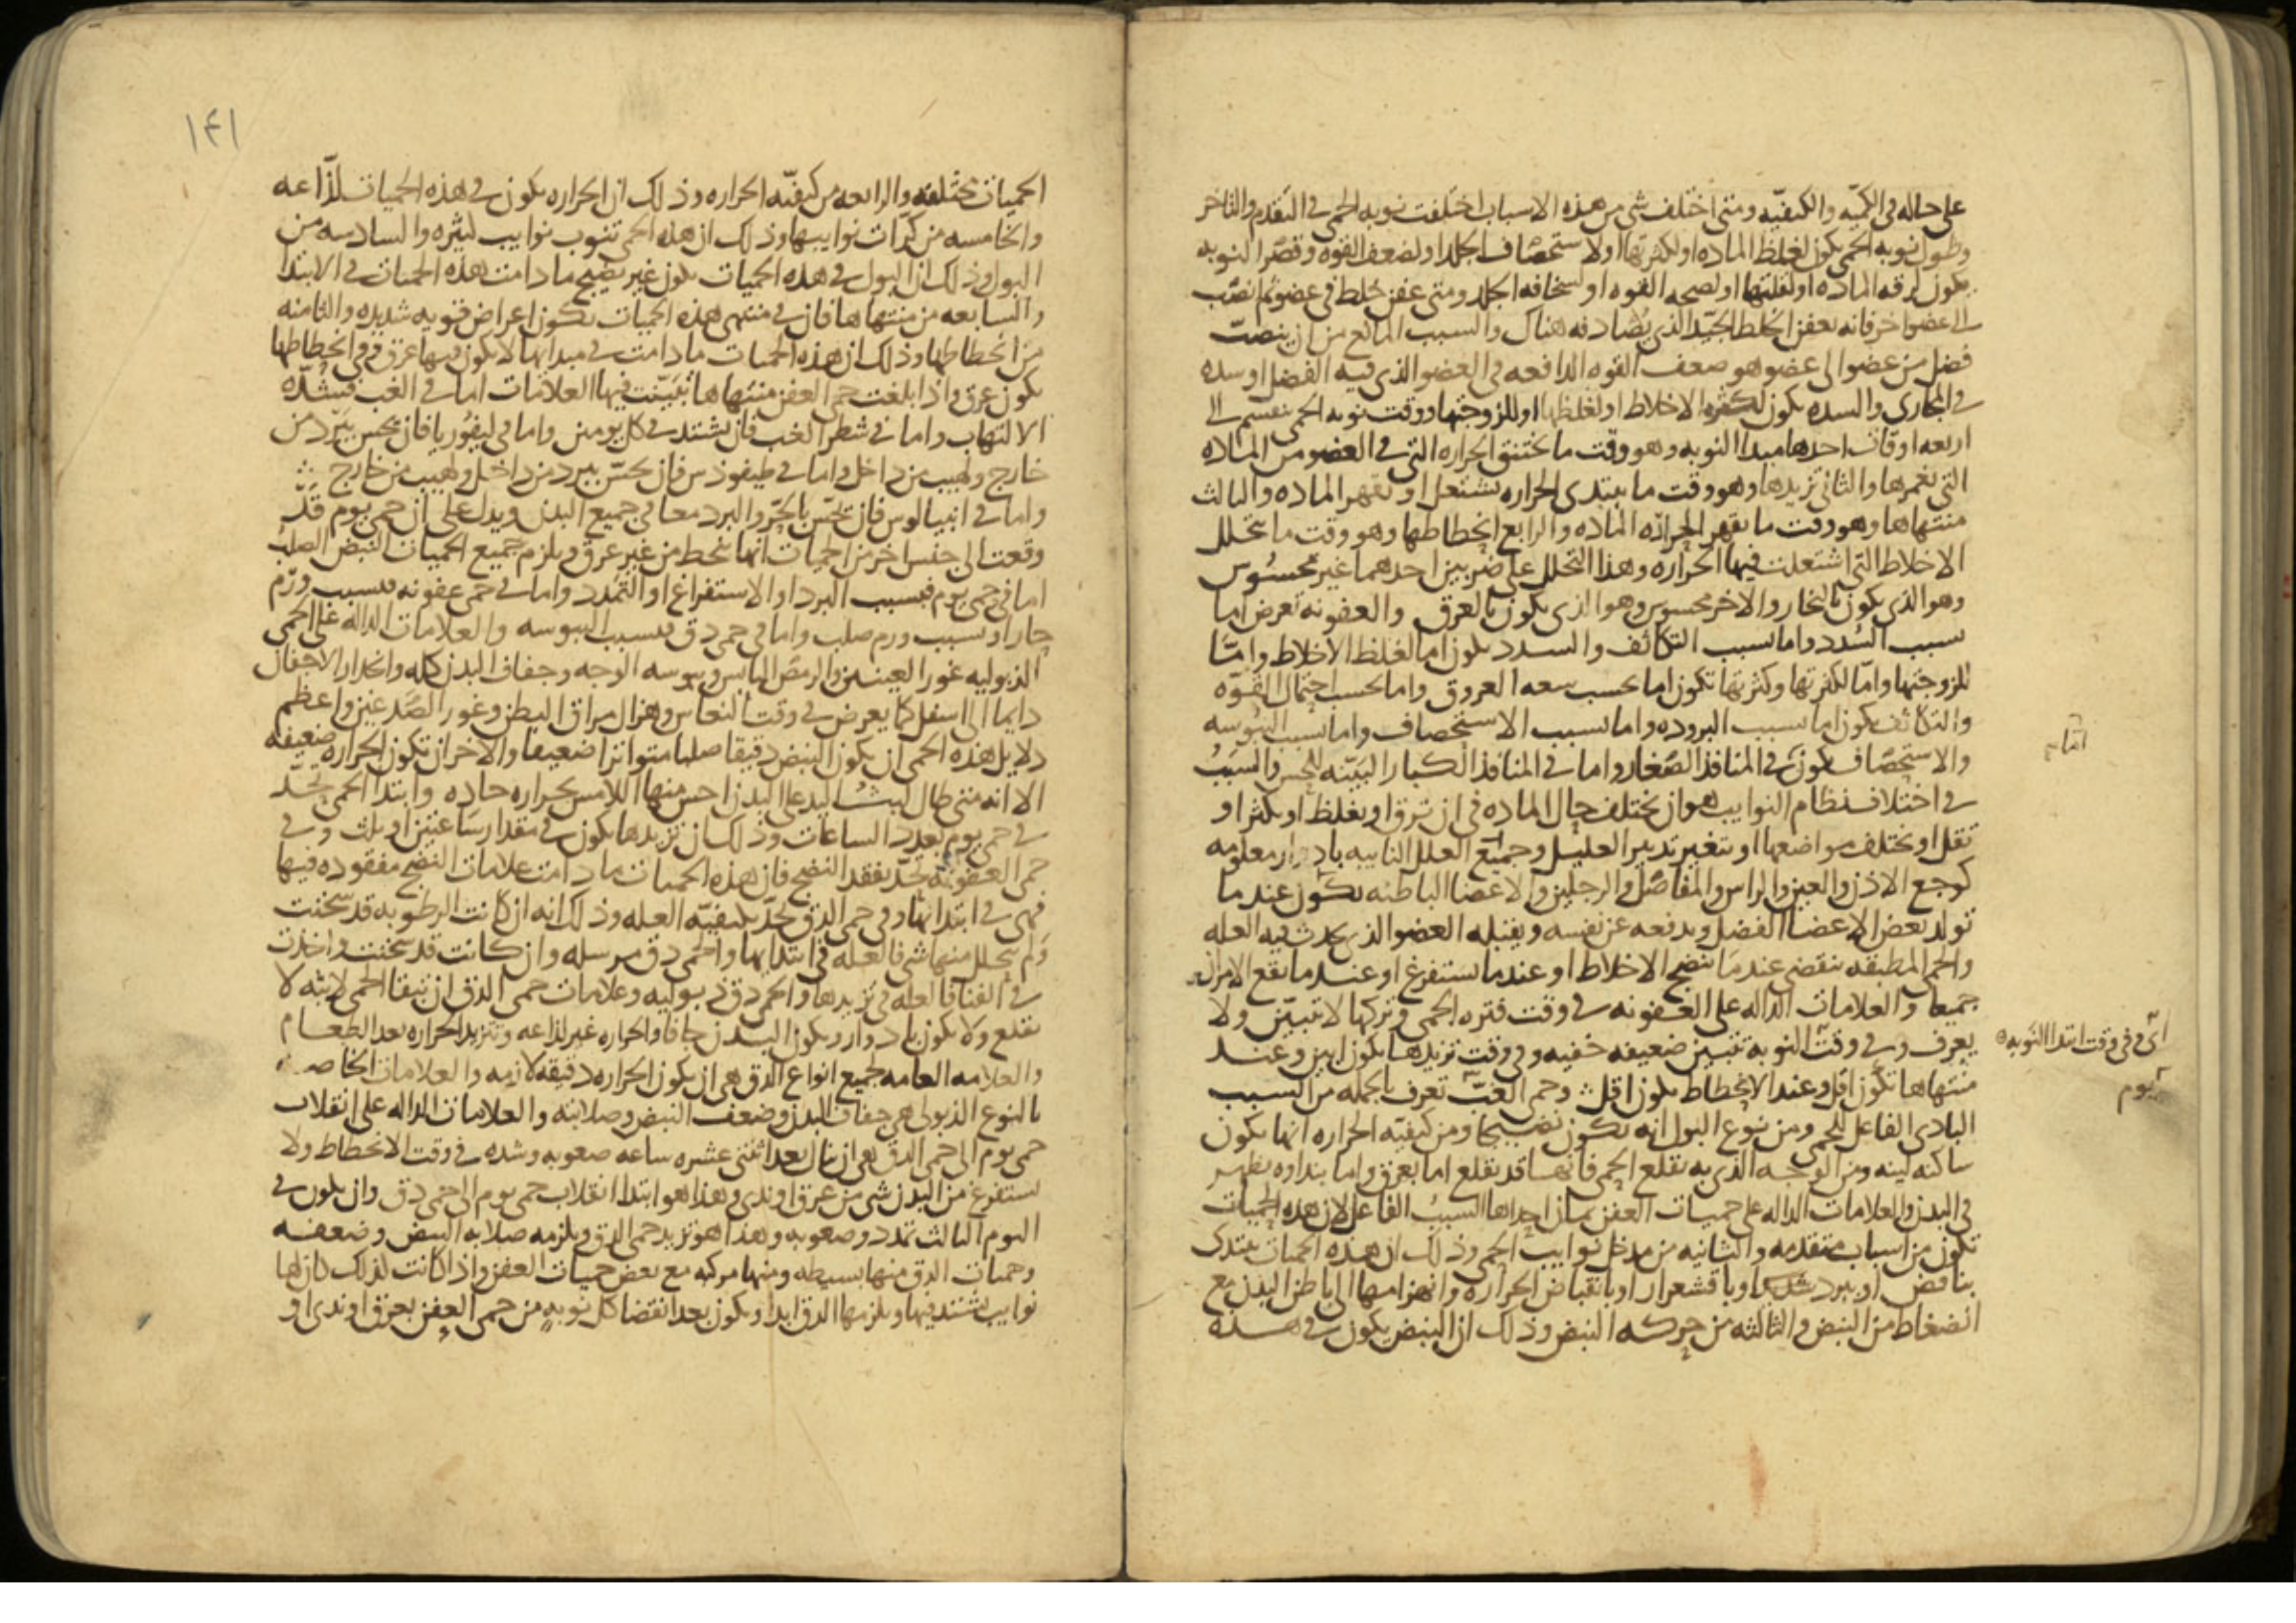 على حاله في الكميه والكيفيه ومتى اختلف شي من هذه الاسباب اختلفت نوبه الحمى في التقدم والتاخر
وطول نوبه الحمى يكون لغلظ الماده او لكثرتها او لاستحصاف الجلد او لضعف القوه وقصر النوبه
يكون لرقه الماده او لقلتها او لصحه القوه او لسخافه الجلد ومتى عفن خلط في عضو ثم انصب
الى عضو اخر فانه يعفن الخلط الجيد الذي يصادفه هناك والسبب المانع من ان ينصب
فضل من عضو الى عضو هو ضعف القوه الدافعه في العضو الذي فيه الفضل او سده
في المجاري والسده يكون لكثره الاخلاط او لغلظها او للزوجتها ووقت نوبه الحمى ينقسم الى
اربعه اوقات احدها مبدا النوبه وهو وقت ما تختنق الحراره التي في العضو من الماده
التي تغمرها والثاني تزيدها وهو وقت ما يبتدى الحراره تشتعل او تقهر الماده والثالث
منتهاها وهو وقت ما يقهر الحراره الماده والرابع انحطاطها وهو وقت ما يتحلل
الاخلاط التي اشتعلت فيها الحراره وهذا التحلل على ضربين احدهما غير محسوس
وهو الذي يكون بالبخار والاخر محسوس وهو الذي يكون بالعرق والعفونه تعرض اما
بسبب السدد واما بسبب التكاثف والسدد يكون اما لغلظ الاخلاط واما
للزوجتها واما لكثرتها وكثرتها تكون اما بحسب سعه العروق واما بحسب احتمال القوه
والتكاثف يكون اما بسبب البروده واما بسبب الاستحصاف واما بسبب اليبوسه
والاستحصاف يكون في المنافذ الصغار واما في المنافذ الكبار البينه للحس والسبب
امام
في اختلاف نظام النوايب هو ان يختلف حال الماده في ان ترق او يغلظ او يكثر او
تقل او يختلف مواضعها او يتغير تدبير العليل وجميع العلل النايبه بادوار معلومه
كوجع الاذن والعين والراس والمفاصل والرجلين والاعضا الباطنه يكون عندما
تولد بعض الاعضا الفضل ويدفعه عن نفسه ويقبله العضو الذي يحدث فيه العله
والحمى المطبقه تنقضي عندما ينضج الاخلاط او عندما تستفرغ او عندما يقع الامران
جميعا والعلامات الداله على العفونه في وقت فتره الحمى وتركها لا تتبين ولا
يعرف وفي وقت النوبه تتبين ضعيفه خفيه وفي وقت تزيدها يكون ابين وعند
اى في وقت ابتدا النوبه
منتهاها تكون اقل وعند الانحطاط يكون اقل وحمى الغب تعرف بالجمله من السبب
يوم
البادى الفاعل للحمى ومن نوع البول انه يكون نضيجا ومن كيفيه الحراره انها يكون
ساكنه لينه ومن الوجه الذي به تقلع الحمى فانها قد تقلع اما بعرق واما بنداوه يظهر
في البدن والعلامات الداله على حميات العفن ثمان احداها السبب الفاعل لان هذه الحميات
تكون من اسباب متقدمه والثانيه من مدخل نوايب الحمى وذلك ان هذه الحميات يبتدى
بنافض او ببرد شديد او باقشعرار او بانقباض الحراره وانهزامها الى باطن البدن مع
انضغاط من النبض والثالثه من حركه النبض وذلك ان النبض يكون في هذه
١٤١
الحميات مختلفه والرابعه من كيفيه الحراره وذلك ان الحراره يكون في هذه الحميات لذاعه
والخامسه من كرات نوايبها وذلك ان هذه الحمى تنوب نوايب كثيره والسادسه من
البول وذلك ان البول في هذه الحميات يكون غير نضيج ما دامت هذه الحميات في الابتدا
والسابعه من منتهاها فان في منتهى هذه الحميات يكون اعراض قويه شديده والثامنه
من انحطاطها وذلك ان هذه الحميات ما دامت في مبدايها لا يكون فيها عرق وفي انحطاطها
يكون عرق واذا بلغت حمى العفن منتهاها تبينت فيها العلامات اما في الغب فبشده
الالتهاب واما في شطر الغب فان تشتد في كل يومين واما في ليفوريا فان يحس ببرد من
خارج ولهيب من داخل واما في طيفودس فان يحس ببرد من داخل ولهيب من خارج
واما في انبيالوس فان يحس بالحر والبرد معا في جميع البدن ويدل على ان حمى يوم قد
وقعت الى جنس اخر من الحميات انها تنحط من غير عرق ويلزم جميع الحميات النبض الصلب
اما في حمى يوم فبسبب البرد او الاستفراغ او التمدد واما في حمى عفونه فبسبب ورم
حار او بسبب ورم صلب واما في حمى دق فبسبب اليبوسه والعلامات الداله على الحمى
الذبوليه غور العينين والرمص اليابس ويبوسه الوجه وجفاف البدن كله وانحدار الاجفان
دايما الى اسفل كما يعرض في وقت النعاس وهزال مراق البطن وغور الصدغين واعظم
دلايل هذه الحمى ان يكون النبض دقيقا صلبا متواترا ضعيفا والاخر ان تكون الحراره ضعيفه
الا انه متى طال لبث اليد على البدن احس منها اللامس بحراره حاده وابتدا الحمى يحد
في حمى يوم بعدد الساعات وذلك ان تزيدها يكون في مقدار ساعتين او ثلث وفي
حمى العفونه تحد بفقد النضج فان هذه الحميات ما دامت علامات النضج مفقوده فيها
فهي في ابتدايها وفي حمى الدق تحد بكيفيه العله وذلك انه ان كانت الرطوبه قد سخنت
ولم يتحلل منها شي فالعله في ابتدايها والحمى دق مرسله وان كانت قد سخنت واخذت
في الفنا فالعله في تزيدها والحمى دق ذبوليه وعلامات حمى الدق ان تبقا الحمى لابثه لا
تقلع ولا يكون بادوار ويكون البدن جافا والحراره غير لذاعه وتتزيد الحراره بعد الطعام
والعلامه العامه لجميع انواع الدق هي ان يكون الحراره دقيقه لازمه والعلامات الخاصه
بالنوع الذبولي هي جفاف البدن وضعف النبض وصلابته والعلامات الداله على انقلاب
حمى يوم الى حمى الدق هي ان ينال بعد اثنتى عشره ساعه صعوبه وشده في وقت الانحطاط ولا
يستفرغ من البدن شي من عرق او ندى وهذا هو ابتدا انقلاب حمى يوم الى حمى دق وان يكون في
اليوم الثالث تمدد وصعوبه وهذا هو تزيد حمى الدق ويلزمه صلابه النبض وضعفه
وحميات الدق منها بسيطه ومنها مركبه مع بعض حميات العفن واذا كانت كذلك كان لها
نوايب تشتد فيها ويلزمها الدق ابدا ويكون بعد انقضا كل نوبه من حمى العفن بعرق او ندى او